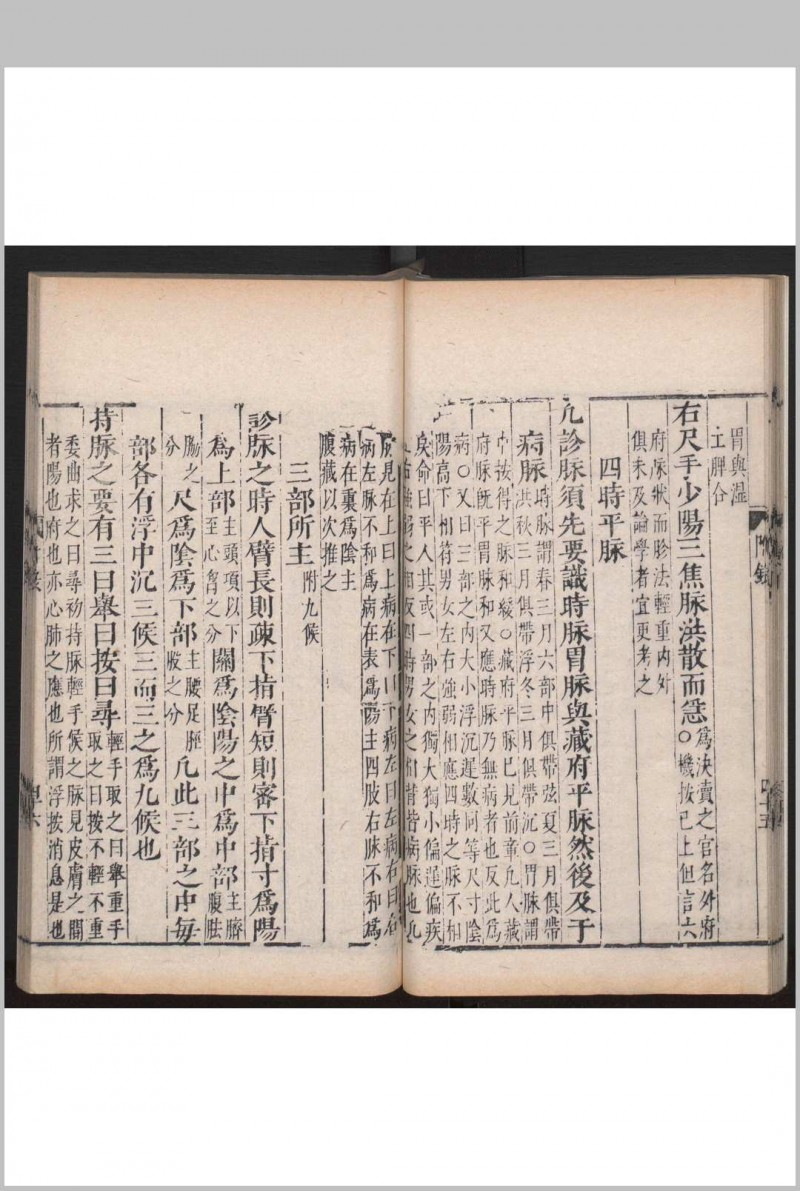 胃與溫
土脾合
右尺手少陽三焦脉洪散而急○
爲決瀆之官名外府
機按已上但言六
府脉狀而胗法輕重內外
俱未及論學者宜更考之
四時平脉
凡診脉須先要識時脉胃脉與藏府平脉然後及于
病脉
時脉謂春三月六部中俱帶弦夏三月俱帶
洪秋三月俱帶浮冬三月俱帶沉○胃脉謂
中按得之脉和緩○藏府平脉已見前章凡人藏
府脉旣平胃脉和又應時脉乃無病者也反此爲
病○又曰三部之內大小浮沉遲數同等尺寸陰
陽高下相符男女左右強弱相應四時之脉不相
戾命曰平人其或一部之内獨大獨小偏遲偏疾
左右強弱之相反四時男女之相背皆病脉也凡
病見在上曰上病在下曰下病左曰左病右曰右
病左脉不和爲病在表爲陽主四肢右脉不和爲
病在裏爲陰主
腹藏以次推之
三部所主
附九候
診脉之時人臂長則疎下指臂短則審下指寸爲陽
爲上部
主頭項以下
至心胷之分
關爲陰陽之中爲中部
主臍
腹胠
脇之
分
尺爲陰爲下部
主腰足脛
股之分
凡此三部之中每
部各有浮中沉三候三而三之爲九候也
持脉之要有三曰舉曰按曰尋
輕手取之曰舉重手
取之曰按不輕不重
委曲求之曰尋初持脉輕手候之脉見皮膚之間
者陽也府也亦心肺之應也所謂浮按消息是也